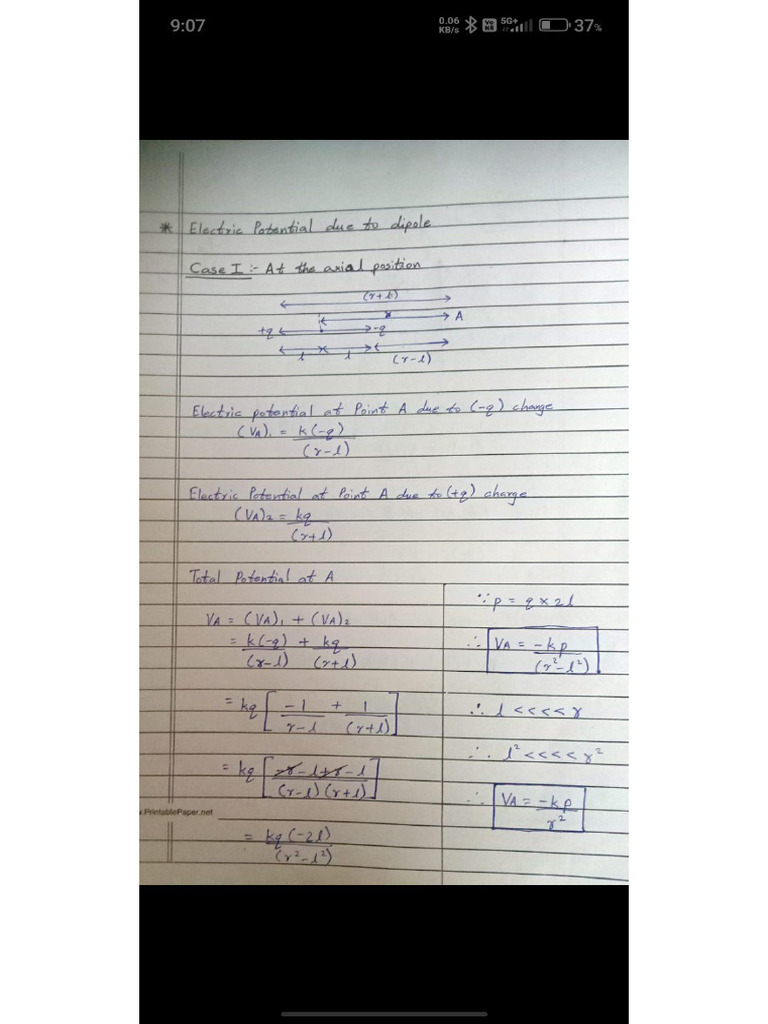 9:07
0.06 KB/s 5G+ 37%
* Electric Potential due to dipole
Case I :- At the axial position
(r+l)
r
A
+q -q
l l (r-l)
Electric potential at Point A due to (-q) charge
(VA)1 = k(-q)
(r-l)
Electric Potential at Point A due to (+q) charge
(VA)2 = kq
(r+l)
Total Potential at A
VA = (VA)1 + (VA)2
= k(-q) + kq
(r-l) (r+l)
= kq [ -1 + 1 ]
r-l (r+l)
= kq [ -r - l + r - l ]
(r-l) (r+l)
PrintablePaper.net
= kq (-2l)
(r²-l²)
∵ p = q × 2l
∴ VA = -kp
(r²-l²)
∴ l <<<< r
∴ l² <<<< r²
∴ VA = -kp
r²